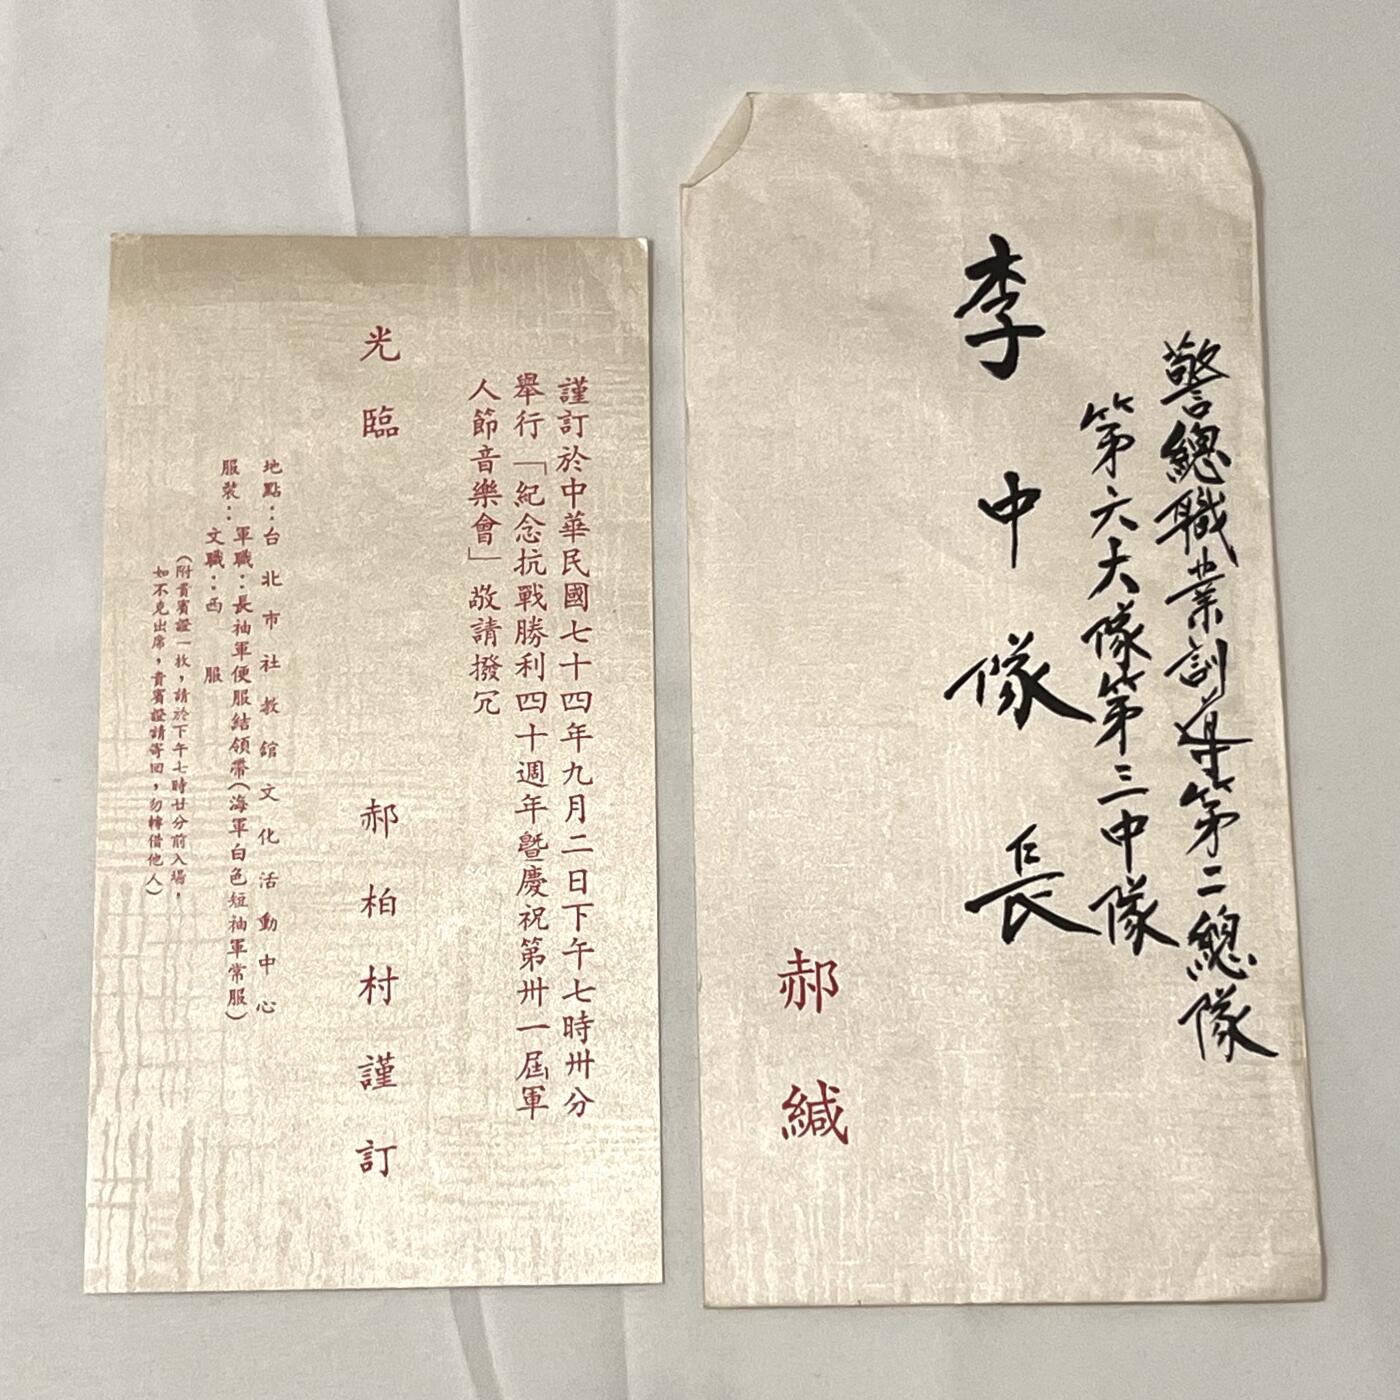 謹訂於中華民國七十四年九月二日下午七時卅分
舉行「紀念抗戰勝利四十週年暨慶祝第卅一屆軍
人節音樂會」敬請撥冗
光臨
郝柏村謹訂
地點：台北市社教館文化活動中心
服裝：軍職：長袖軍便服結領帶（海軍白色短袖軍常服）
文職：西服
（附貴賓證一枚，請於下午七時廿分前入場，
如不克出席，貴賓證請寄回，勿轉借他人）
警總職業訓導第二總隊
第六大隊第三中隊
李中隊長
仁
郝緘